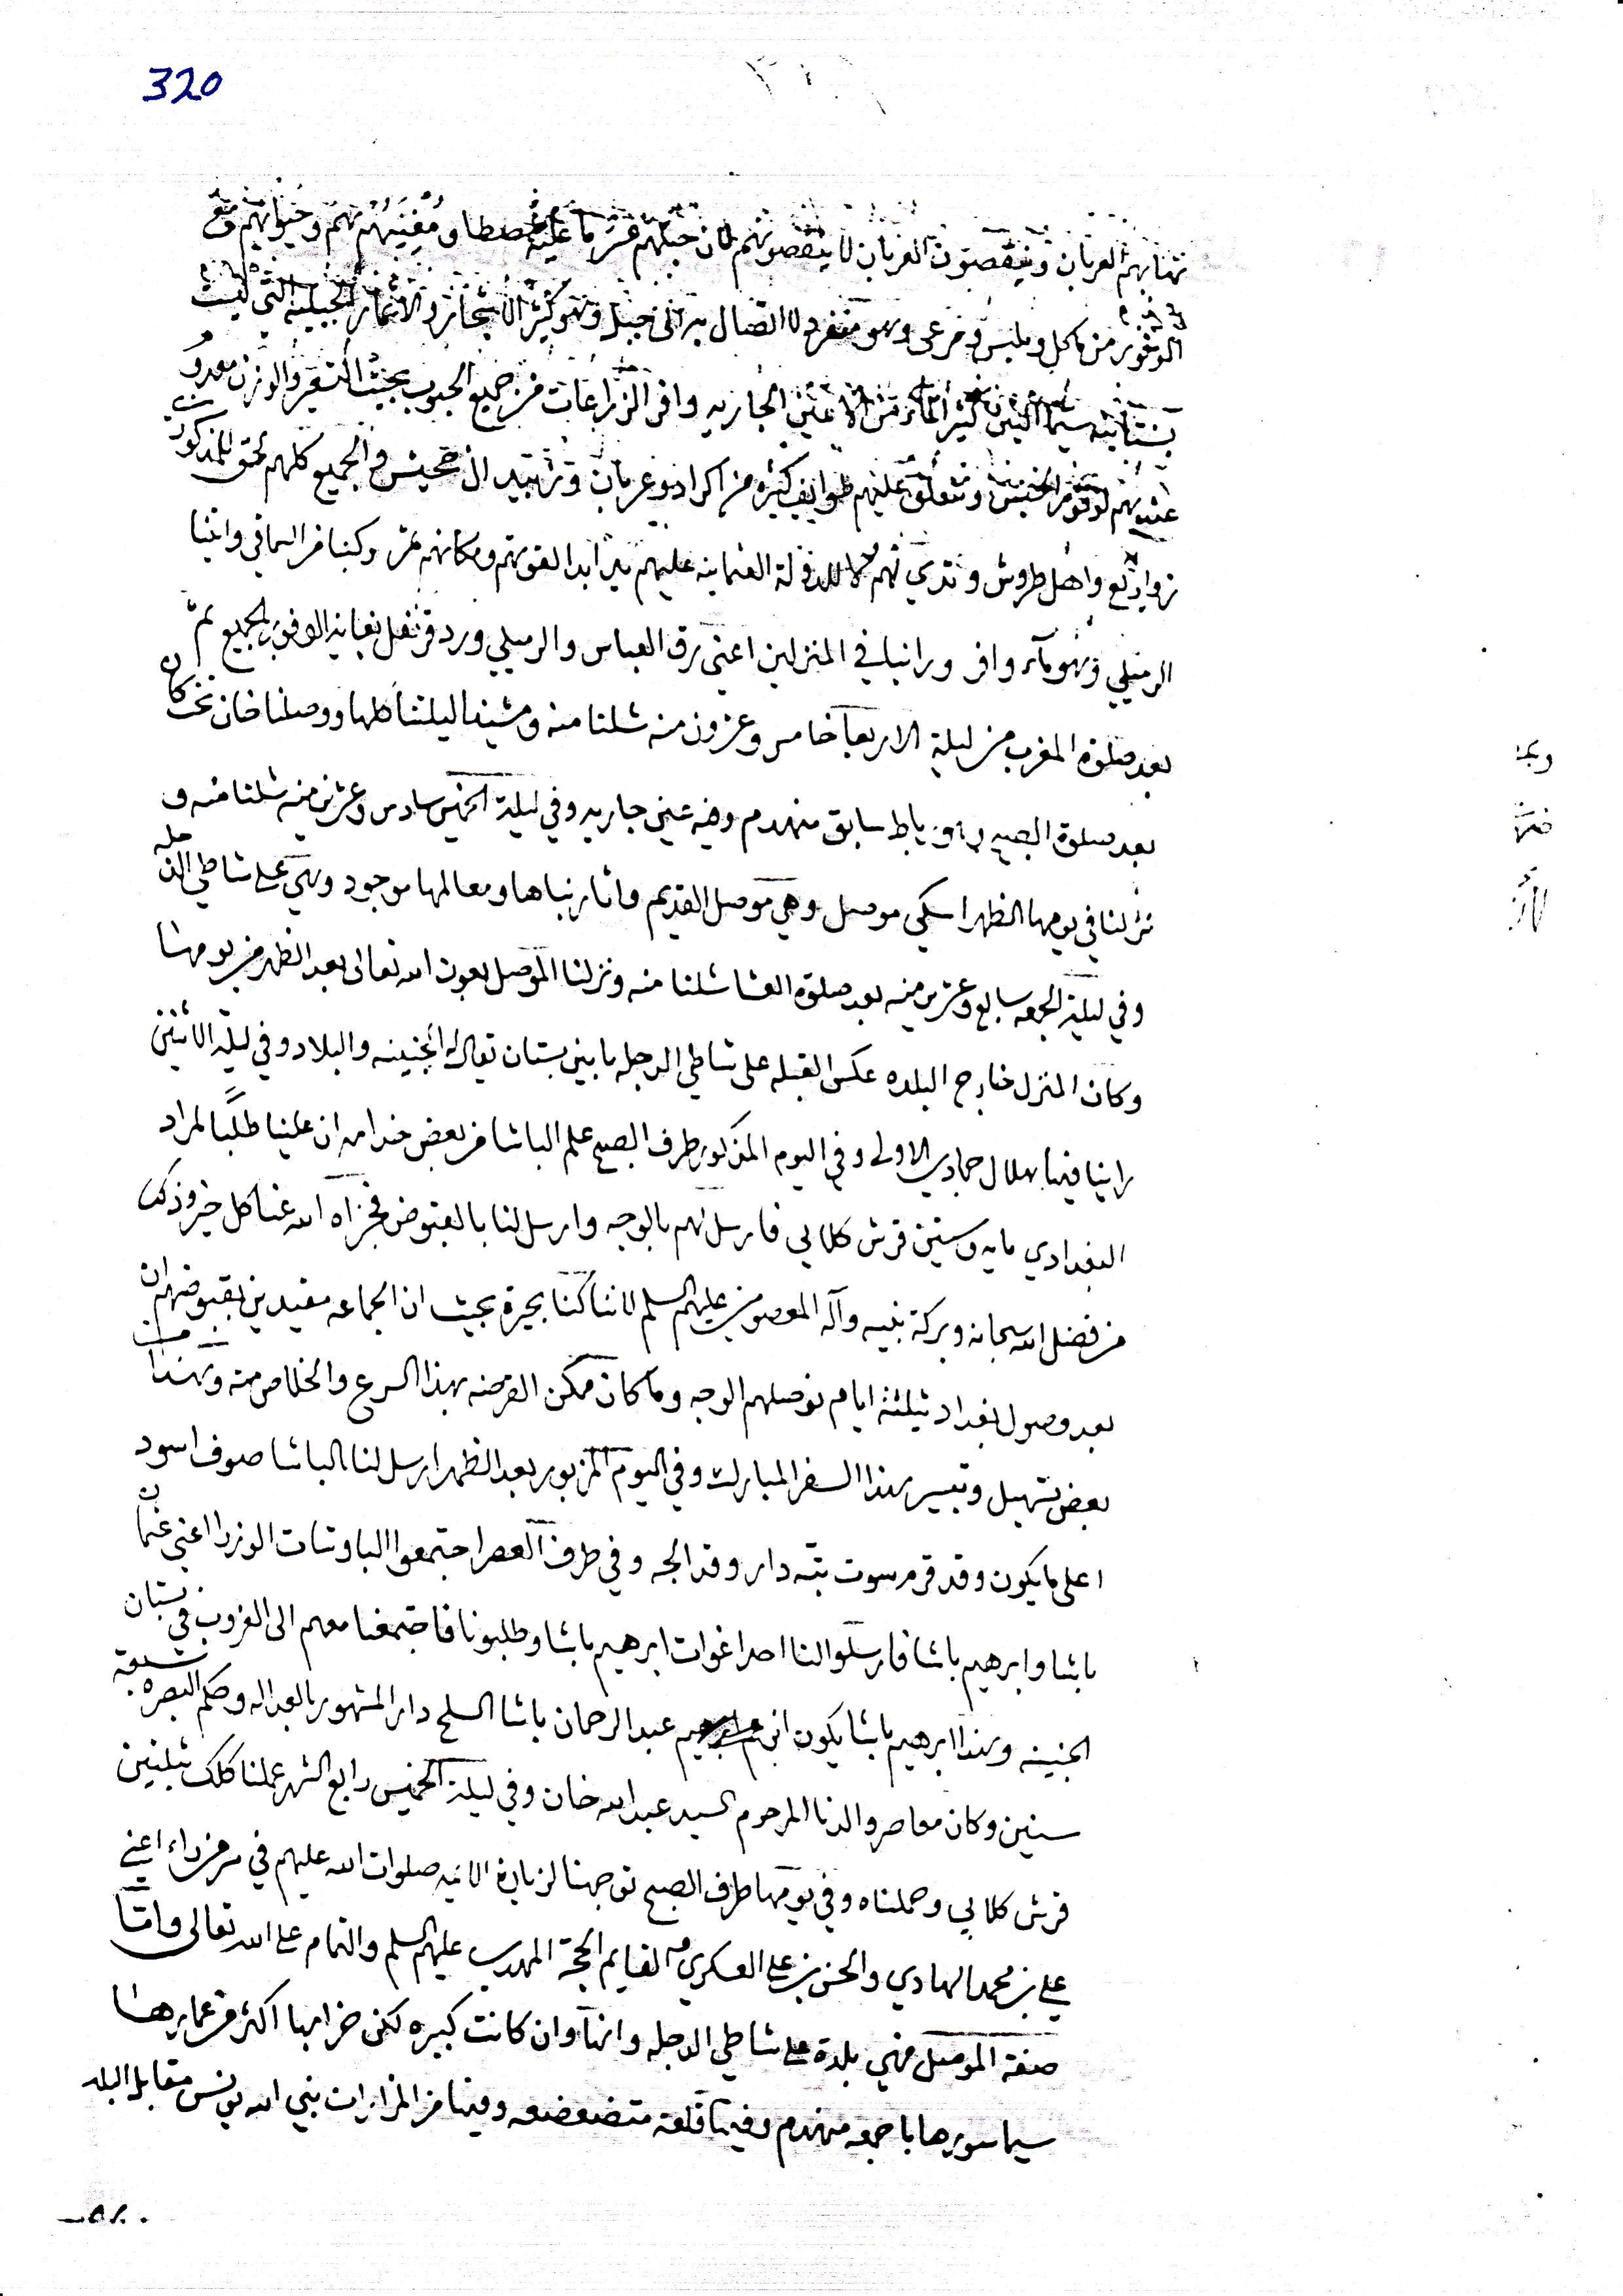 320
تهنا بهم العربان وينقصون العربان لا ينقصونهم لان جبلهم عسر ما عليه مصطا ومغنيهم وحيواتهم مع
الوفور من ماكل وملبس ومرعى وهو منفرد لا اتصال به الى جبل وهو كثير الاشجار والاثمار الجبليه التي ليست
بستانيه سيما التين كثير الماء من الاعين الجاريه وافر الزراعات من جميع الحبوب بحيث السعر والوزن معدوم
عندهم لوفور الجنس وتتعلق عليهم طوايف كثيره من اكراد وعربان والجميع كلهم للمذكور
زوايع واهل طروش وتدي لهم لا للدولة العثمانيه عليهم يد ابدا لقوتهم ومكانهم عسر وكبنا من اليماني واتينا
الرميلي وهو ماء وافر وراينا في المنزلين اعني زرق العباس والرميلي ورد قرنفل بغاية الوفور بالجميع ثم
بعد صلوة المغرب من ليلة الاربعا خامس وعشرون منه شلنا منه ومشينا ليلتنا كلها ووصلنا خان
بعد صلوة الصبح رباط سابق منهدم وفيه عين جاريه وفي ليلة الخميس سادس وعشرين منه شلنا منه و
نزلنا في يومها الظهر اسكي موصل وهي موصل القديم واثار بناها ومعالمها موجود وهي على شاطي الدجله
وفي ليلة الجمعه سابع وعشرين منه بعد صلوة العشا شلنا منه ونزلنا الموصل بعون الله تعالى بعد الظهر من يومها
وكان المنزل خارج البلده عكس القبله على شاطي الدجله مابين بستان يقال له الجنينه والبلاد وفي ليلة الاثنين
راينا فيها هلال جمادي الاولى وفي اليوم المذكور طرف الصبح علم الباشا من بعض خدامه ان علينا طلبا لمراد
البغدادي مايه وستين قرش كلابي فارسل لهم بالوجه وارسل لنا بالقبوض فجزاه الله عنا كل خير وذلك
من فضل الله سبحانه وبركة نبيه وآله المعصومين عليهم السلم لاننا كنا بحيرة بحيث ان الجماعه مقيدين بقبوضهم ان
بعد وصول بغداد بثلثة ايام نوصلهم الوجه وما كان ممكن القرضه بهذا السرع والخلاص منه وهذا من
بعض تسهيل وتيسير هذا السفر المبارك وفي اليوم المزبور بعد الظهر ارسل لنا الباشا صوف اسود
اعلى ما يكون وقد قرمسوت بته دار وقد الجه وفي طرف العصر اجتمعوا الباوشات الوزرا اعني عثمان
باشا وابرهيم باشا فارسلوا لنا احد اغوات ابرهيم باشا وطلبونا فاجتمعنا معهم الى الغروب في بستان
الجنينه وهذا ابرهيم باشا يكون ابن عم عبد الرحمان باشا السلحدار المشهور بالعداله وحكم البصره سبعة
سنين وكان معاصر والدنا المرحوم السيد عبد الله خان وفي ليلة الخميس رابع الشهر عملنا كلك بثلثين
قرش كلابي وحملناه وفي يومها طرف الصبح توجهنا لزيارة الائمه صلوات الله عليهم في سر من راء اعني
علي بن محمد الهادي والحسن بن علي العسكري والقايم الحجة المهدي عليهم السلم والتمام على الله تعالى واما
صفة الموصل فهي بلدة على شاطي الدجله وانها وان كانت كبيره لكن خرابها اكثر من عمارها
سيما سورها باجمعه منهدم وفيها قلعة متضعضعه وفيها من المزارات نبي الله يونس مقابل البلد